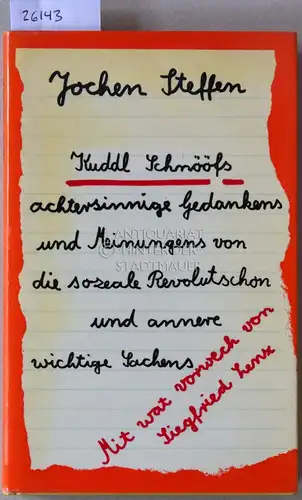 26143
Jochen Steffen
Kuddl Schnööfs
achtersinnige Gedankens
und Meinungens von
die sozeale Revolutschon
und annere
wichtige Sachens
Mit wat vorwech von
Siegfried Lenz
ANTIQUARIAT
HINTER DER
STADTMAUER